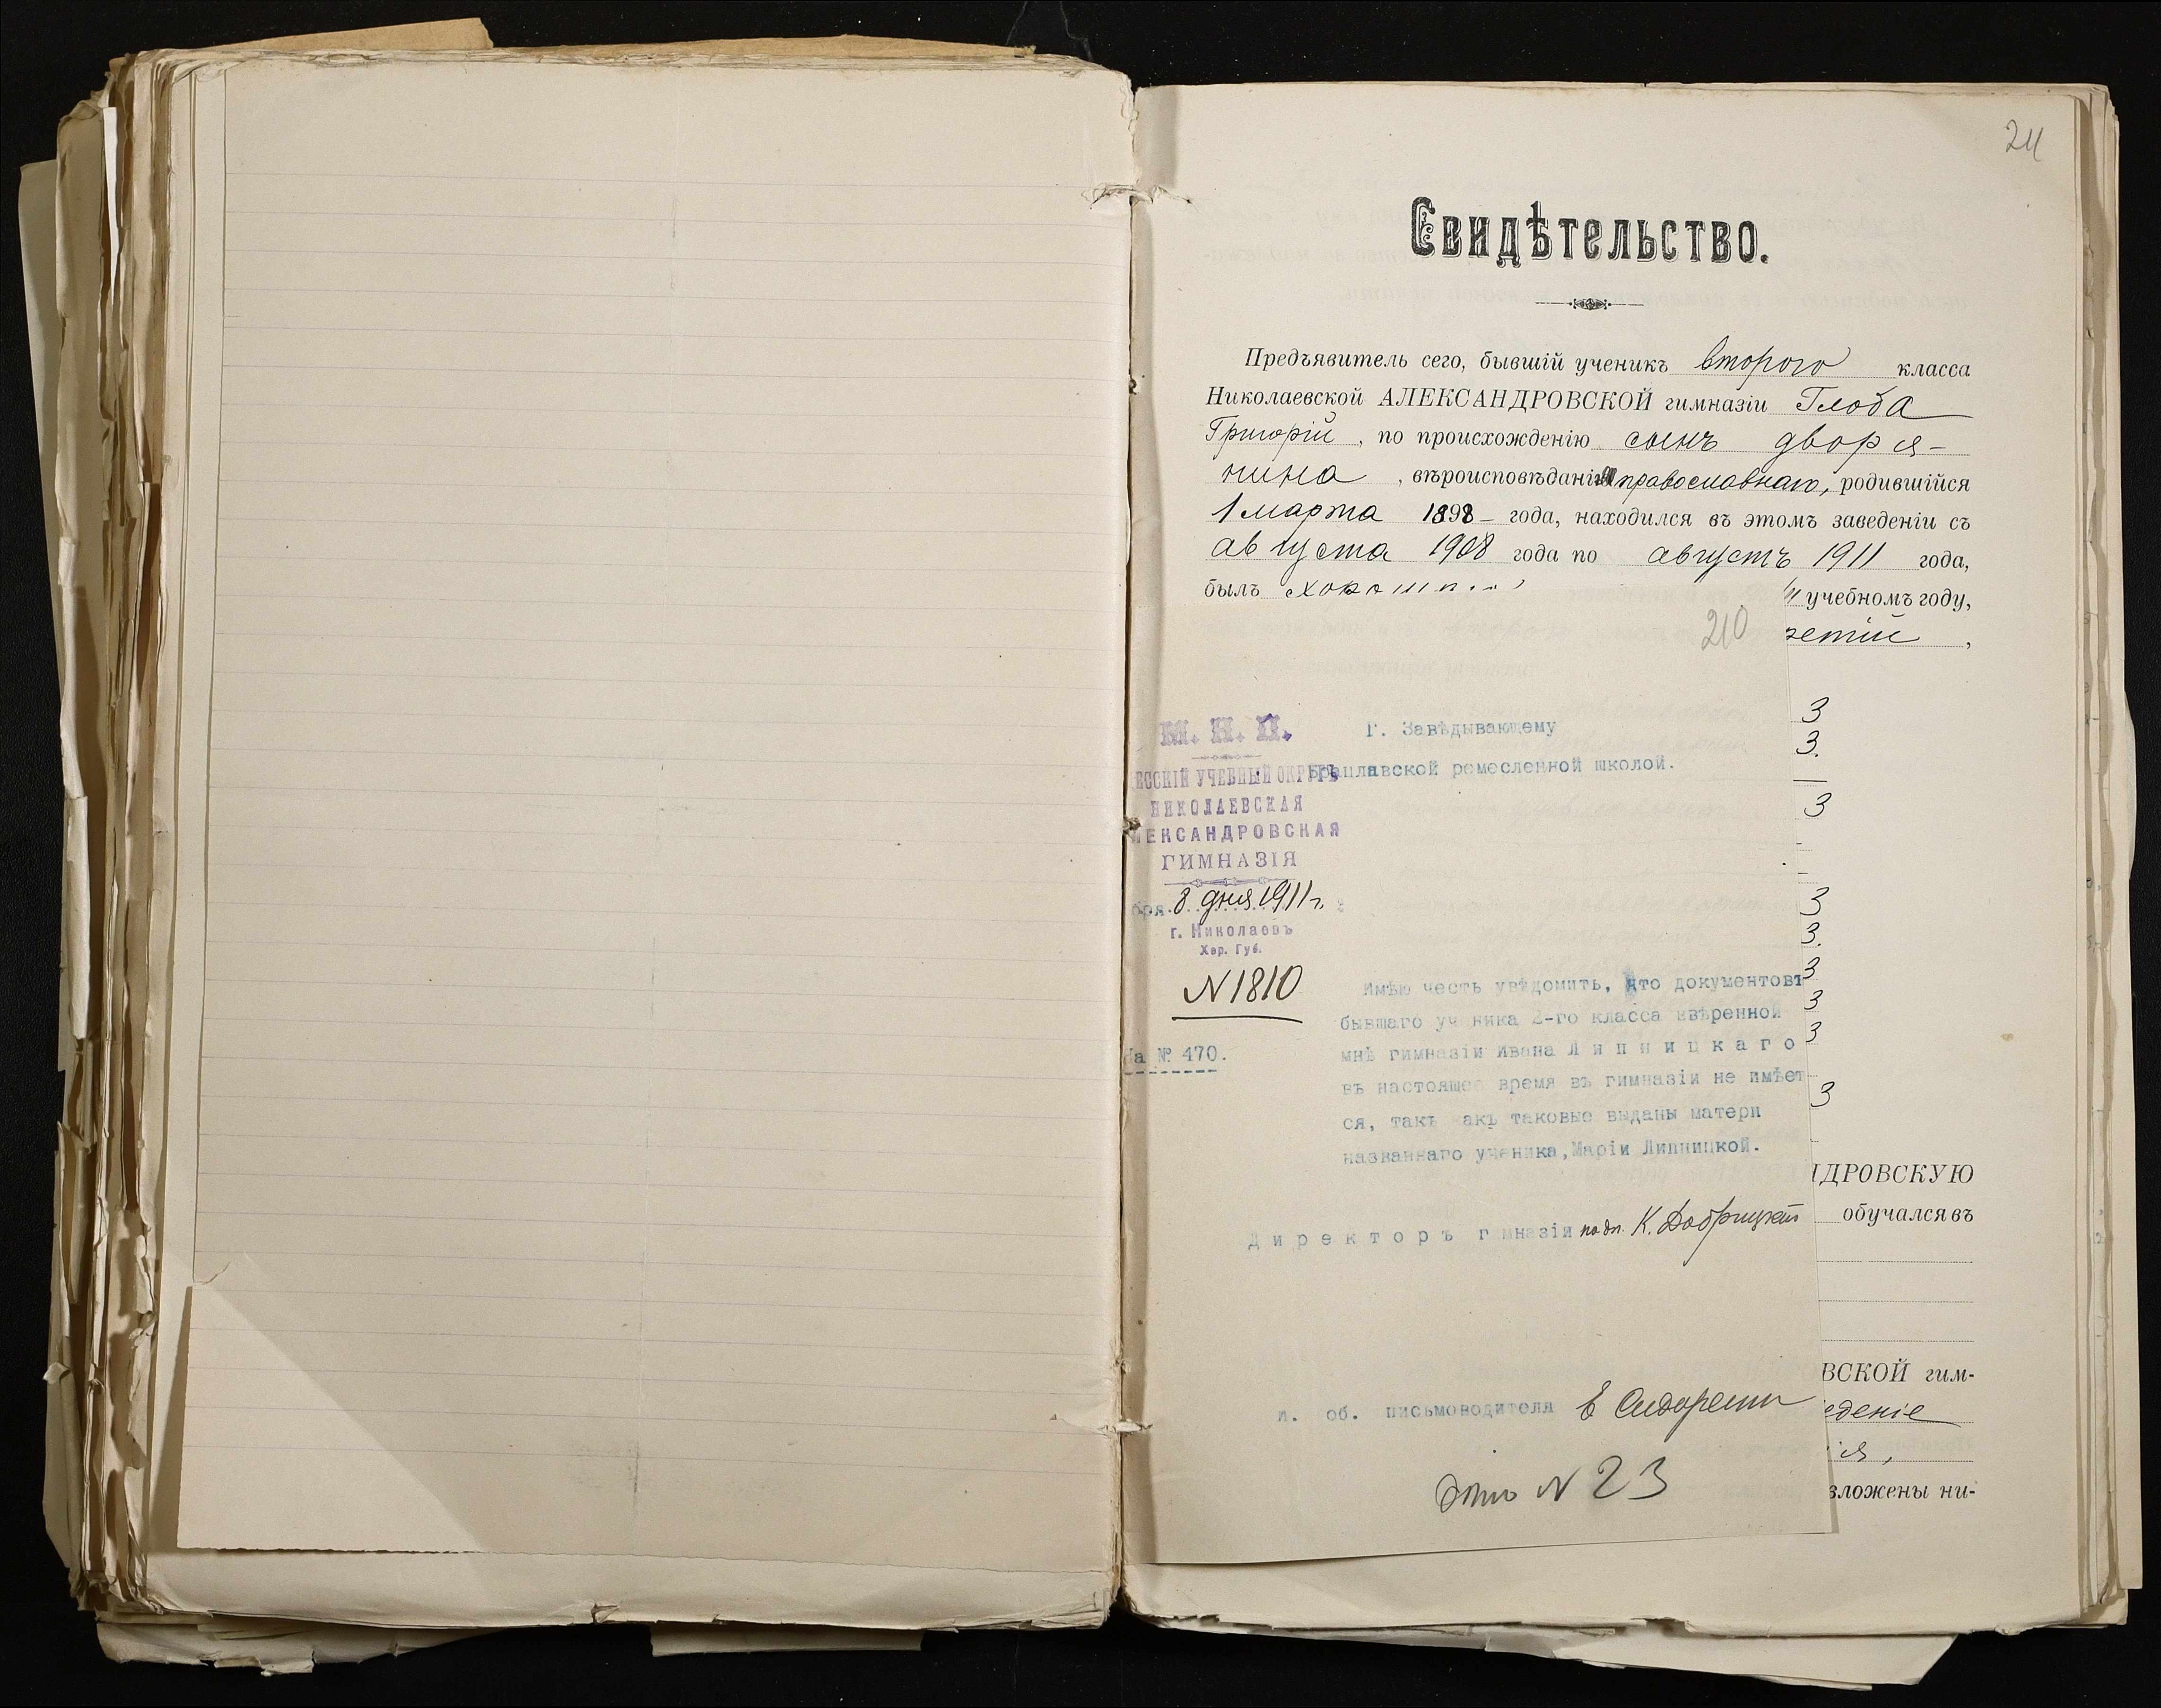 24
Свидѣтельство.
Предъявитель сего, бывшій ученикъ второго класса
Николаевской АЛЕКСАНДРОВСКОЙ гимназіи Глоба
Григорій, по происхожденію сынъ дворя-
нина, вѣроисповѣданія православнаго, родившійся
1 марта 1898 года, находился въ этомъ заведеніи съ
августа 1908 года по августъ 1911 года,
былъ
учебномъ году,
210
ретій,
3
3.
3
3
3.
3
3
3
3
М. Н. П.
ЕССКІЙ УЧЕБНЫЙ ОКРУГЪ
НИКОЛАЕВСКАЯ
ЛЕКСАНДРОВСКАЯ
ГИМНАЗІЯ
бря 8 дня 1911 г.
г. Николаевъ
Хер. Губ.
N 1810
На № 470.
Г. Завѣдывающему
Брацлавской ремесленной школой.
Имѣю честь увѣдомить, что документовъ
бывшаго ученика 2-го класса ввѣренной
мнѣ гимназіи Ивана Липницкаго
въ настоящее время въ гимназіи не имѣет
ся, такъ какъ таковые выданы матери
названнаго ученика, Маріи Липницкой.
Директоръ гимназіи подп. К. Добрицкій
и. об. письмоводителя
N 23
НДРОВСКУЮ
обучался въ
ВСКОЙ гим-
еденіе
ія,
зложены ни-